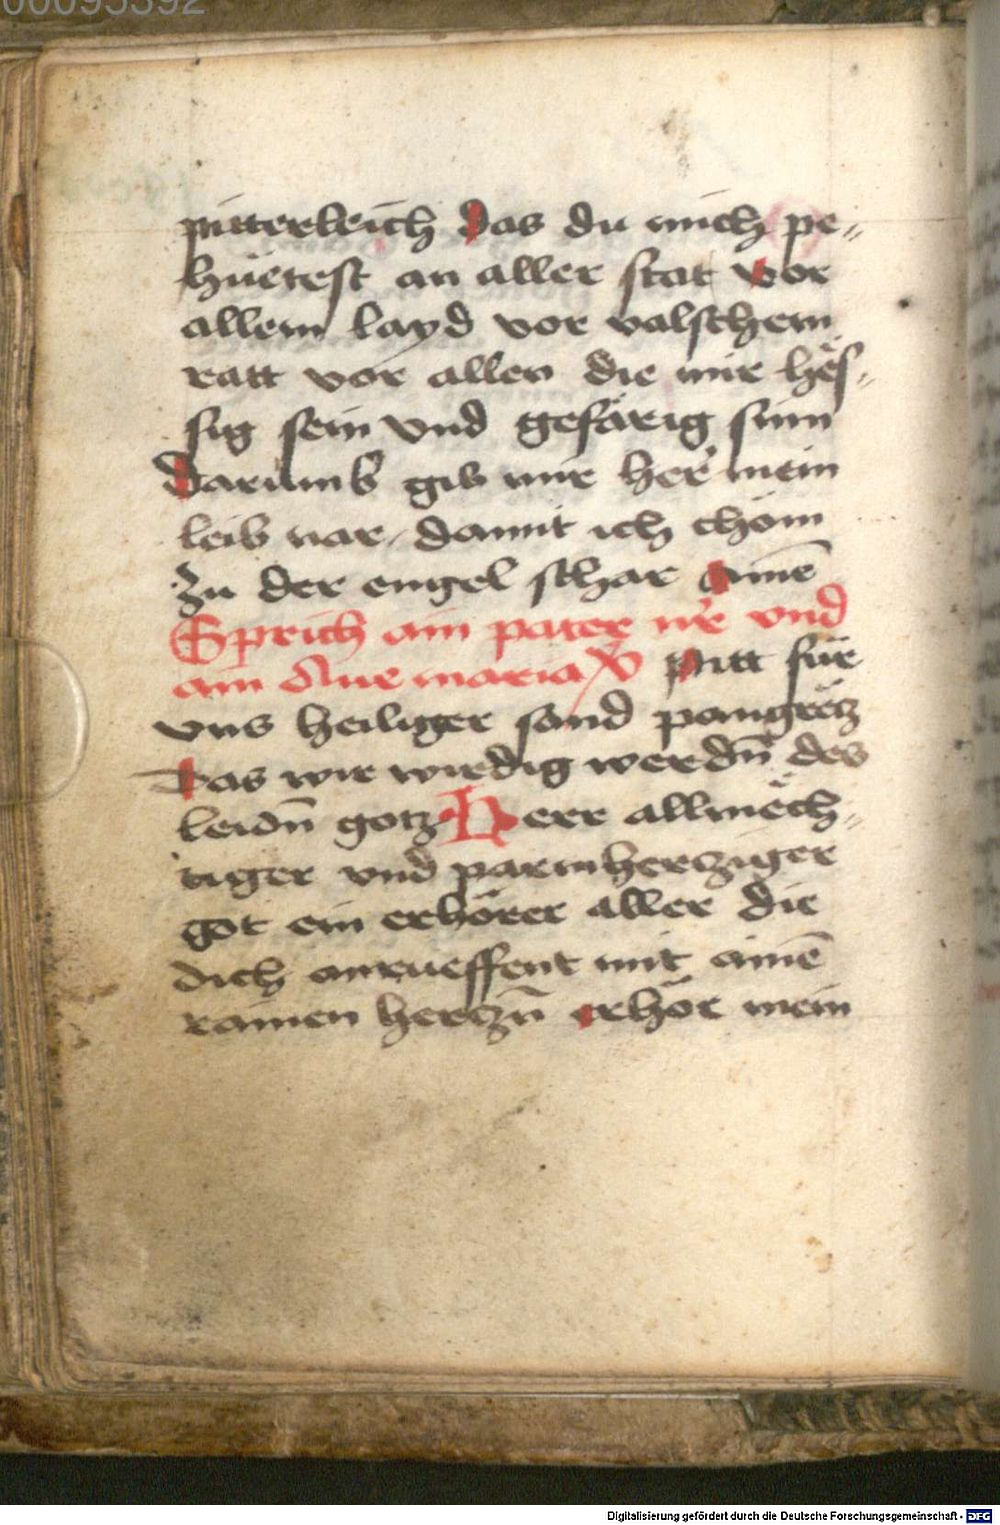 00095392
pitterleich das du mich pe-
hüetest an aller stat vor
allem layd vor valschem
ratt vor allen die mir hës-
sig sein vnd gefärig sinn
darumb gib mir her mein
leib nar damit ich chöm
zu der engel schar amē
Sprich ain pater nr̄ vnd
ain Aue maria V̷ pitt für
vns heiliger sand pangrëcz
das wir wirdig werdn̄ des
leidn̄ gotz Herr allmëch-
tiger vnd parmhercziger
got ein erhörer aller die
dich anrueffent mit aimē
rainen herczn̄ erhör mein
Digitalisierung gefördert durch die Deutsche Forschungsgemeinschaft - DFG